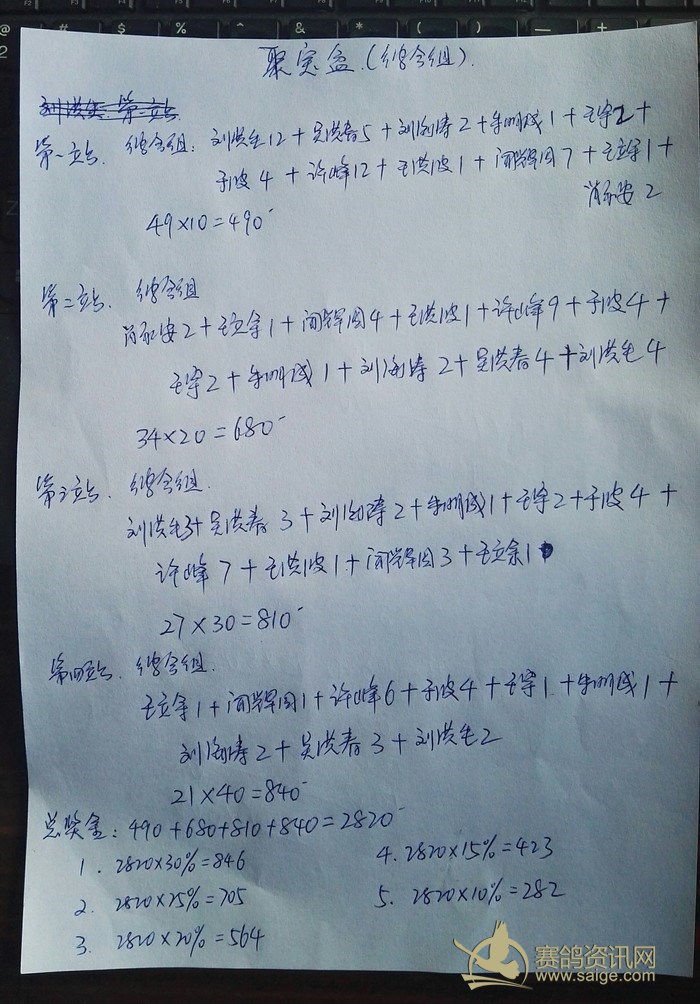 聚宝盆.(综合组).
第一站. 综合组: 刘洪生12+吴洪春5+刘海涛2+朱明成1+王宇2+
于波4+许峰12+王洪波1+闻辉国7+王立余1+
肖永安2
49×10=490
第二站. 综合组
肖永安2+王立余1+闻辉国4+王洪波1+许峰9+于波4+
王宇2+朱明成1+刘海涛2+吴洪春4+刘洪生4
34×20=680
第三站. 综合组.
刘洪生3+吴洪春3+刘海涛2+朱明成1+王宇2+于波4+
许峰7+王洪波1+闻辉国3+王立余1
27×30=810
第四站. 综合组.
王立余1+闻辉国1+许峰6+于波4+王宇1+朱明成1+
刘海涛2+吴洪春3+刘洪生2
21×40=840
总奖金: 490+680+810+840=2820
1. 2820×30%=846
2. 2820×25%=705
3. 2820×20%=564
4. 2820×15%=423
5. 2820×10%=282
赛鸽资讯网
www.saige.com